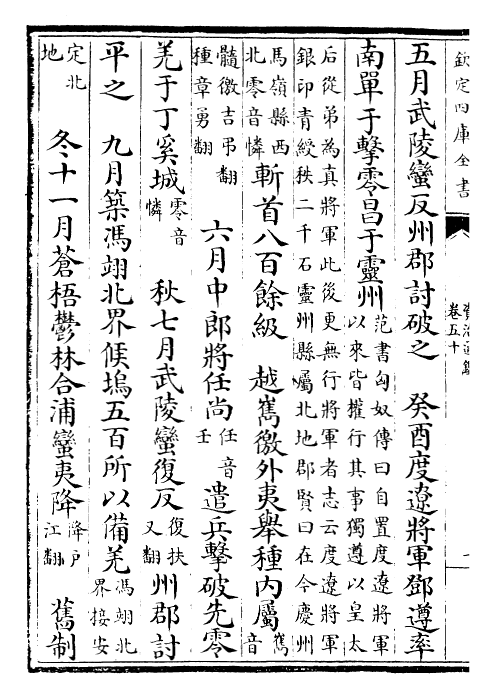 欽定四庫全書
資治通鑑
卷五十
五月武陵蠻反州郡討破之　癸酉度遼將軍鄧遵率
南單于擊零昌于靈州
范書匈奴傳曰自置度遼將軍
以來皆權行其事獨遵以皇太
后從弟為真將軍此後更無行將軍者志云度遼將軍
銀印青綬秩二千石靈州縣屬北地郡賢曰在今慶州
馬嶺縣西
北零音憐
斬首八百餘級　越嶲徼外夷舉種内屬
嶲
音
髓徼吉弔翻
種章勇翻
六月中郎將任尚
任音
壬
遣兵擊破先零
羌于丁奚城
零音
憐
秋七月武陵蠻復反
復扶
又翻
州郡討
平之　九月築馮翊北界候塢五百所以備羌
馮翊北
界接安
定北
地
冬十一月蒼梧鬱林合浦蠻夷降
降戶
江翻
舊制